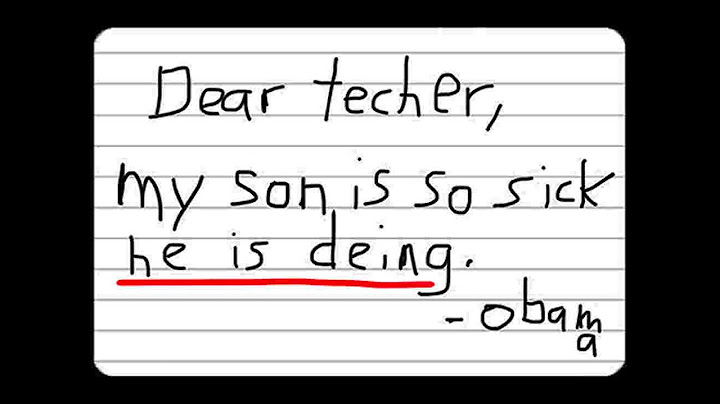 Dear techer,
my son is so sick
he is deing.
- obama